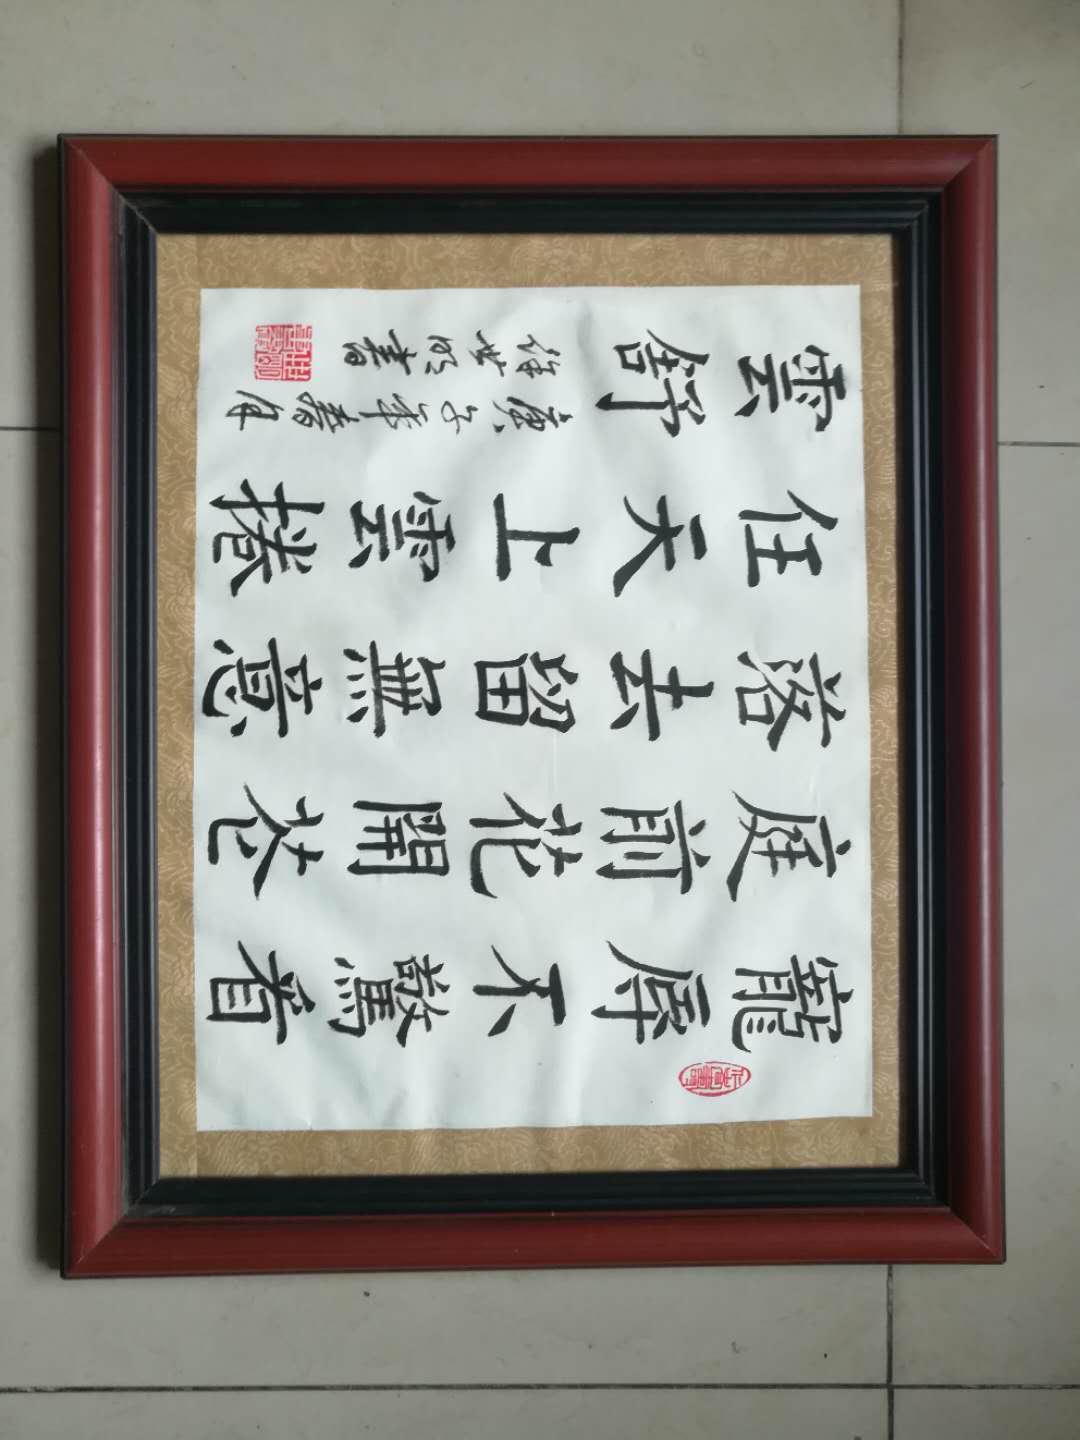 寵辱不驚看
庭前花開花
落去留無意
任天上雲捲
雲舒
庚子年春月
世書